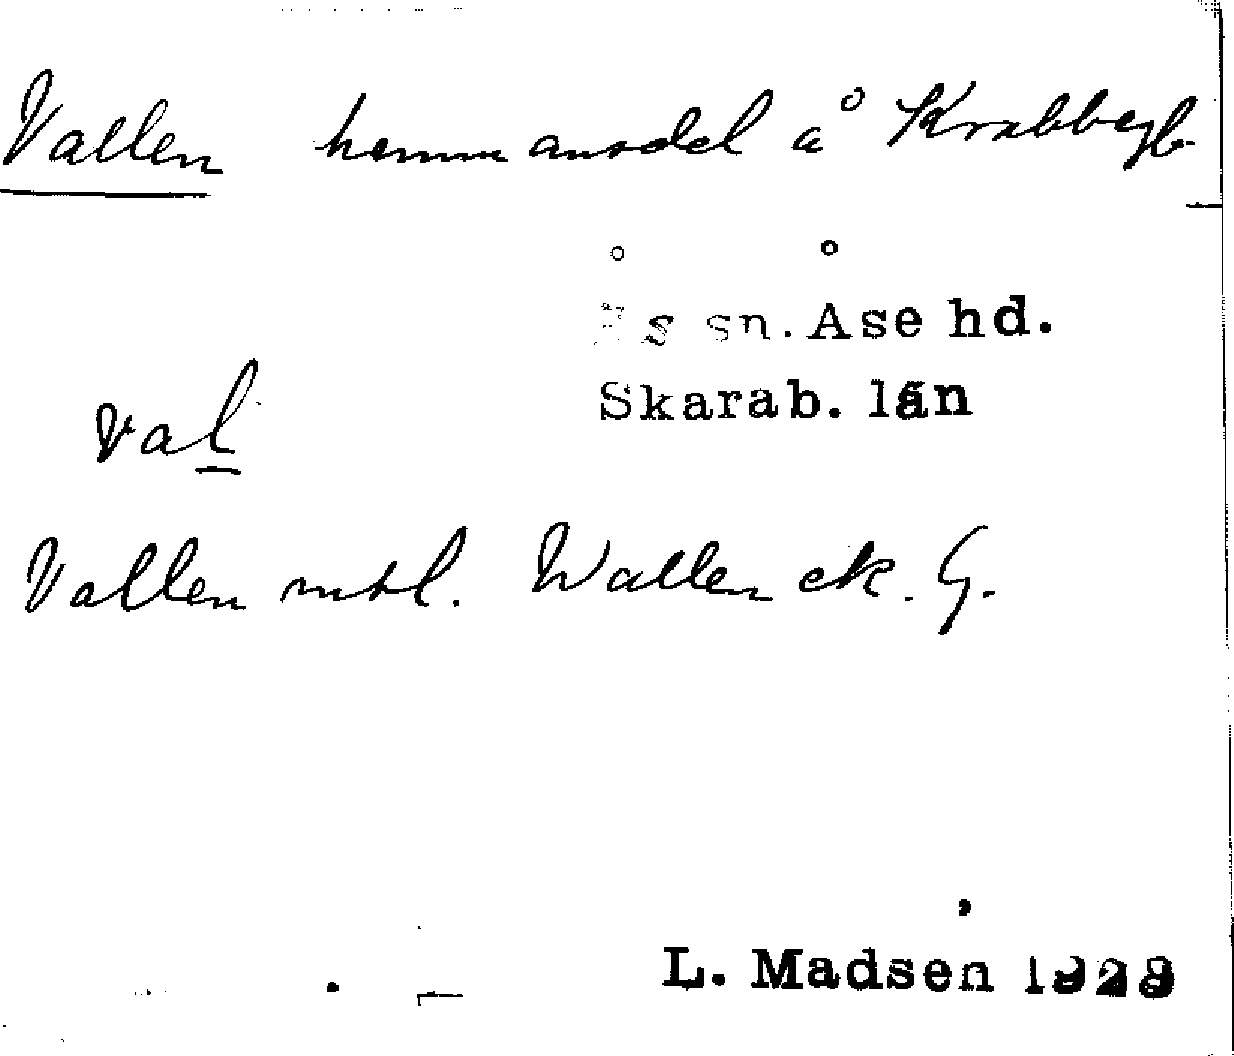 Vallen hemmansdel å Krabbegb
Ås sn. Åse hd.
Skarab. län
val
Vallen mtl. Wallen ek. G.
L. Madsen 1928